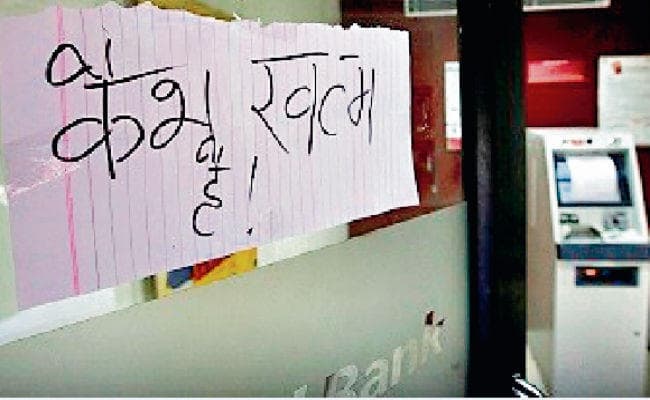 कैश खत्म
है!
Bank